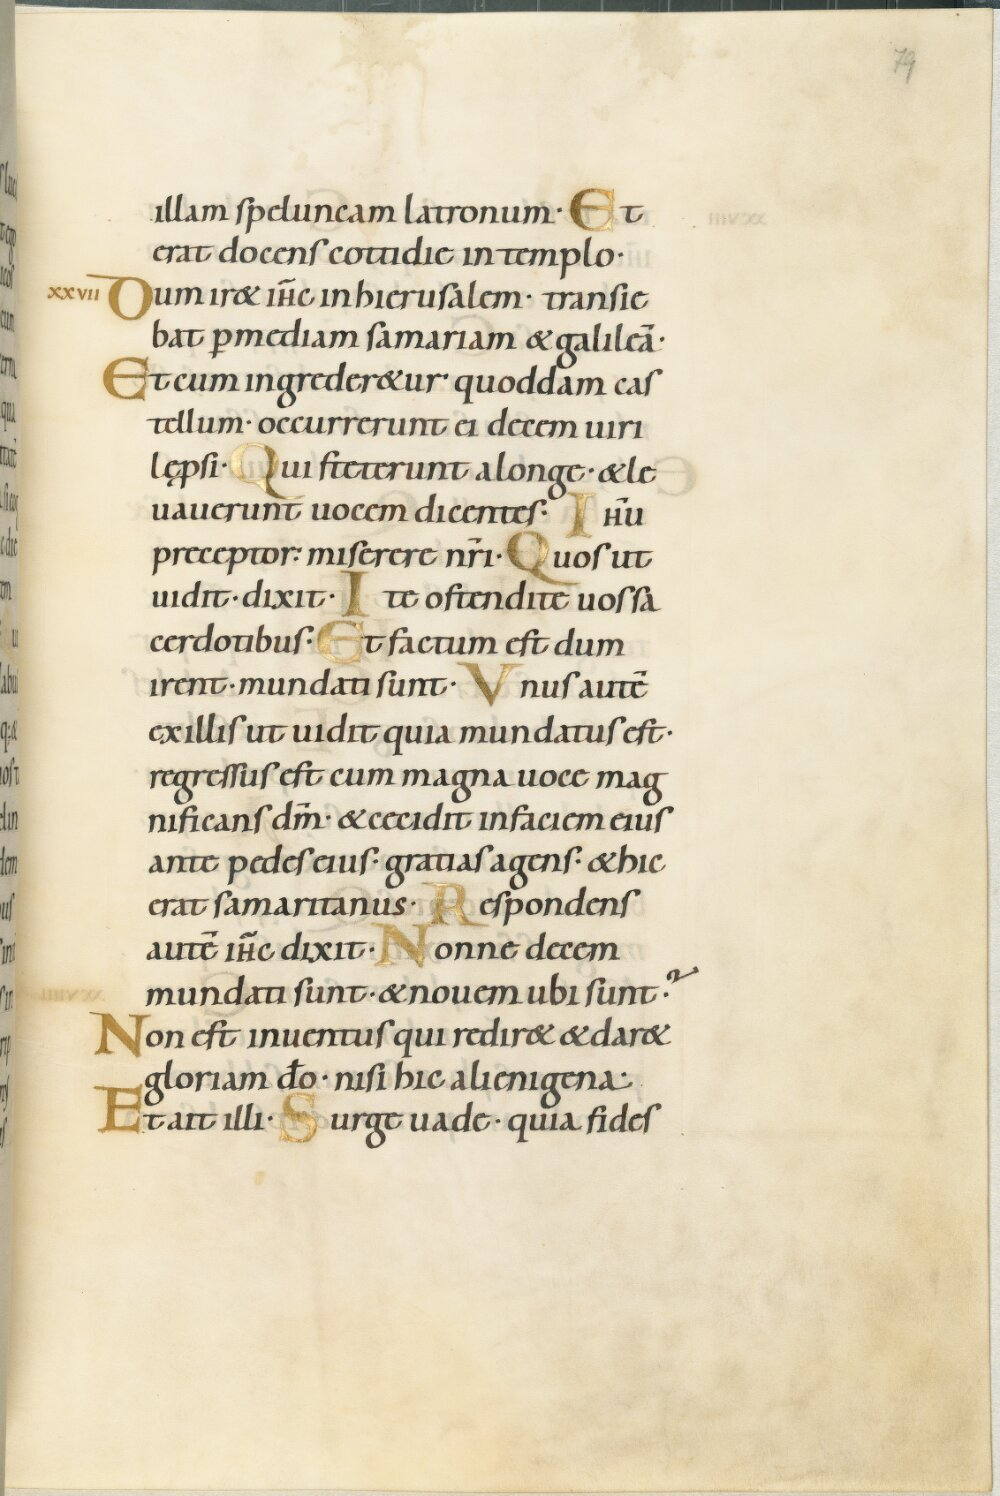 79
illam speluncam latronum· Et
erat docens cottidie in templo·
xxvii Dum ir& ih̅c in hierusalem· transie
bat ꝑmediam samariam & galileā·
Et cum ingreder&ur· quoddam cas
tellum· occurrerunt ei decem uiri
lępsi· Qui steterunt alonge· & le
uauerunt uocem dicentes· Ih̅u
preceptor: miserere nr̅i· Quos ut
uidit· dixit· Ite ostendite uos sa
cerdotibus· Et factum est dum
irent· mundati sunt· Vnus autē
exillis ut uidit quia mundatus est·
regressus est cum magna uoce mag
nificans dm̅· & cecidit infaciem eius
ante pedes eius· gratias agens· & hic
erat samaritanus· Respondens
autē ih̅c dixit· Nonne decem
mundati sunt· & nouem ubi sunt·?
Non est inuentus qui redir& & dar&
gloriam do̅· nisi hic alienigena·
Et ait illi· Surge uade· quia fides